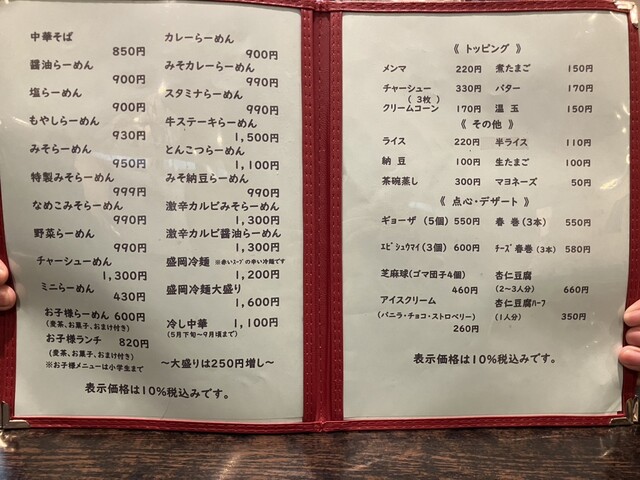 中華そば
850円
醤油らーめん
900円
塩らーめん
900円
もやしらーめん
930円
みそらーめん
950円
特製みそらーめん
999円
なめこみそらーめん
990円
野菜らーめん
990円
チャーシューめん
1,300円
ミニらーめん
430円
お子様らーめん 600円
(麦茶、お菓子、おまけ付き)
お子様ランチ 820円
(麦茶、お菓子、おまけ付き)
※お子様メニューは小学生まで
カレーらーめん
900円
みそカレーらーめん
990円
スタミナらーめん
990円
牛ステーキらーめん
1,500円
とんこつらーめん
1,100円
みそ納豆らーめん
990円
激辛カルビみそらーめん
1,300円
激辛カルビ醤油らーめん
1,300円
盛岡冷麺 ※赤いスープの辛い冷麺です
1,200円
盛岡冷麺大盛り
1,600円
冷し中華 1,100円
(5月下旬~9月頃まで)
~大盛りは250円増し~
表示価格は10%税込みです。
《 トッピング 》
メンマ 220円 煮たまご 150円
チャーシュー 330円 バター 170円
(3枚)
クリームコーン 170円 温玉 150円
《 その他 》
ライス 220円 半ライス 110円
納豆 100円 生たまご 100円
茶碗蒸し 300円 マヨネーズ 50円
《 点心・デザート 》
ギョーザ (5個) 550円 春巻(3本) 550円
エビシュウマイ(3個) 600円 チーズ春巻(3本) 580円
芝麻球(ゴマ団子4個) 杏仁豆腐
460円 (2~3人分) 660円
アイスクリーム 杏仁豆腐ハーフ
(バニラ・チョコ・ストロベリー) (1人分) 350円
260円
表示価格は10%税込みです。